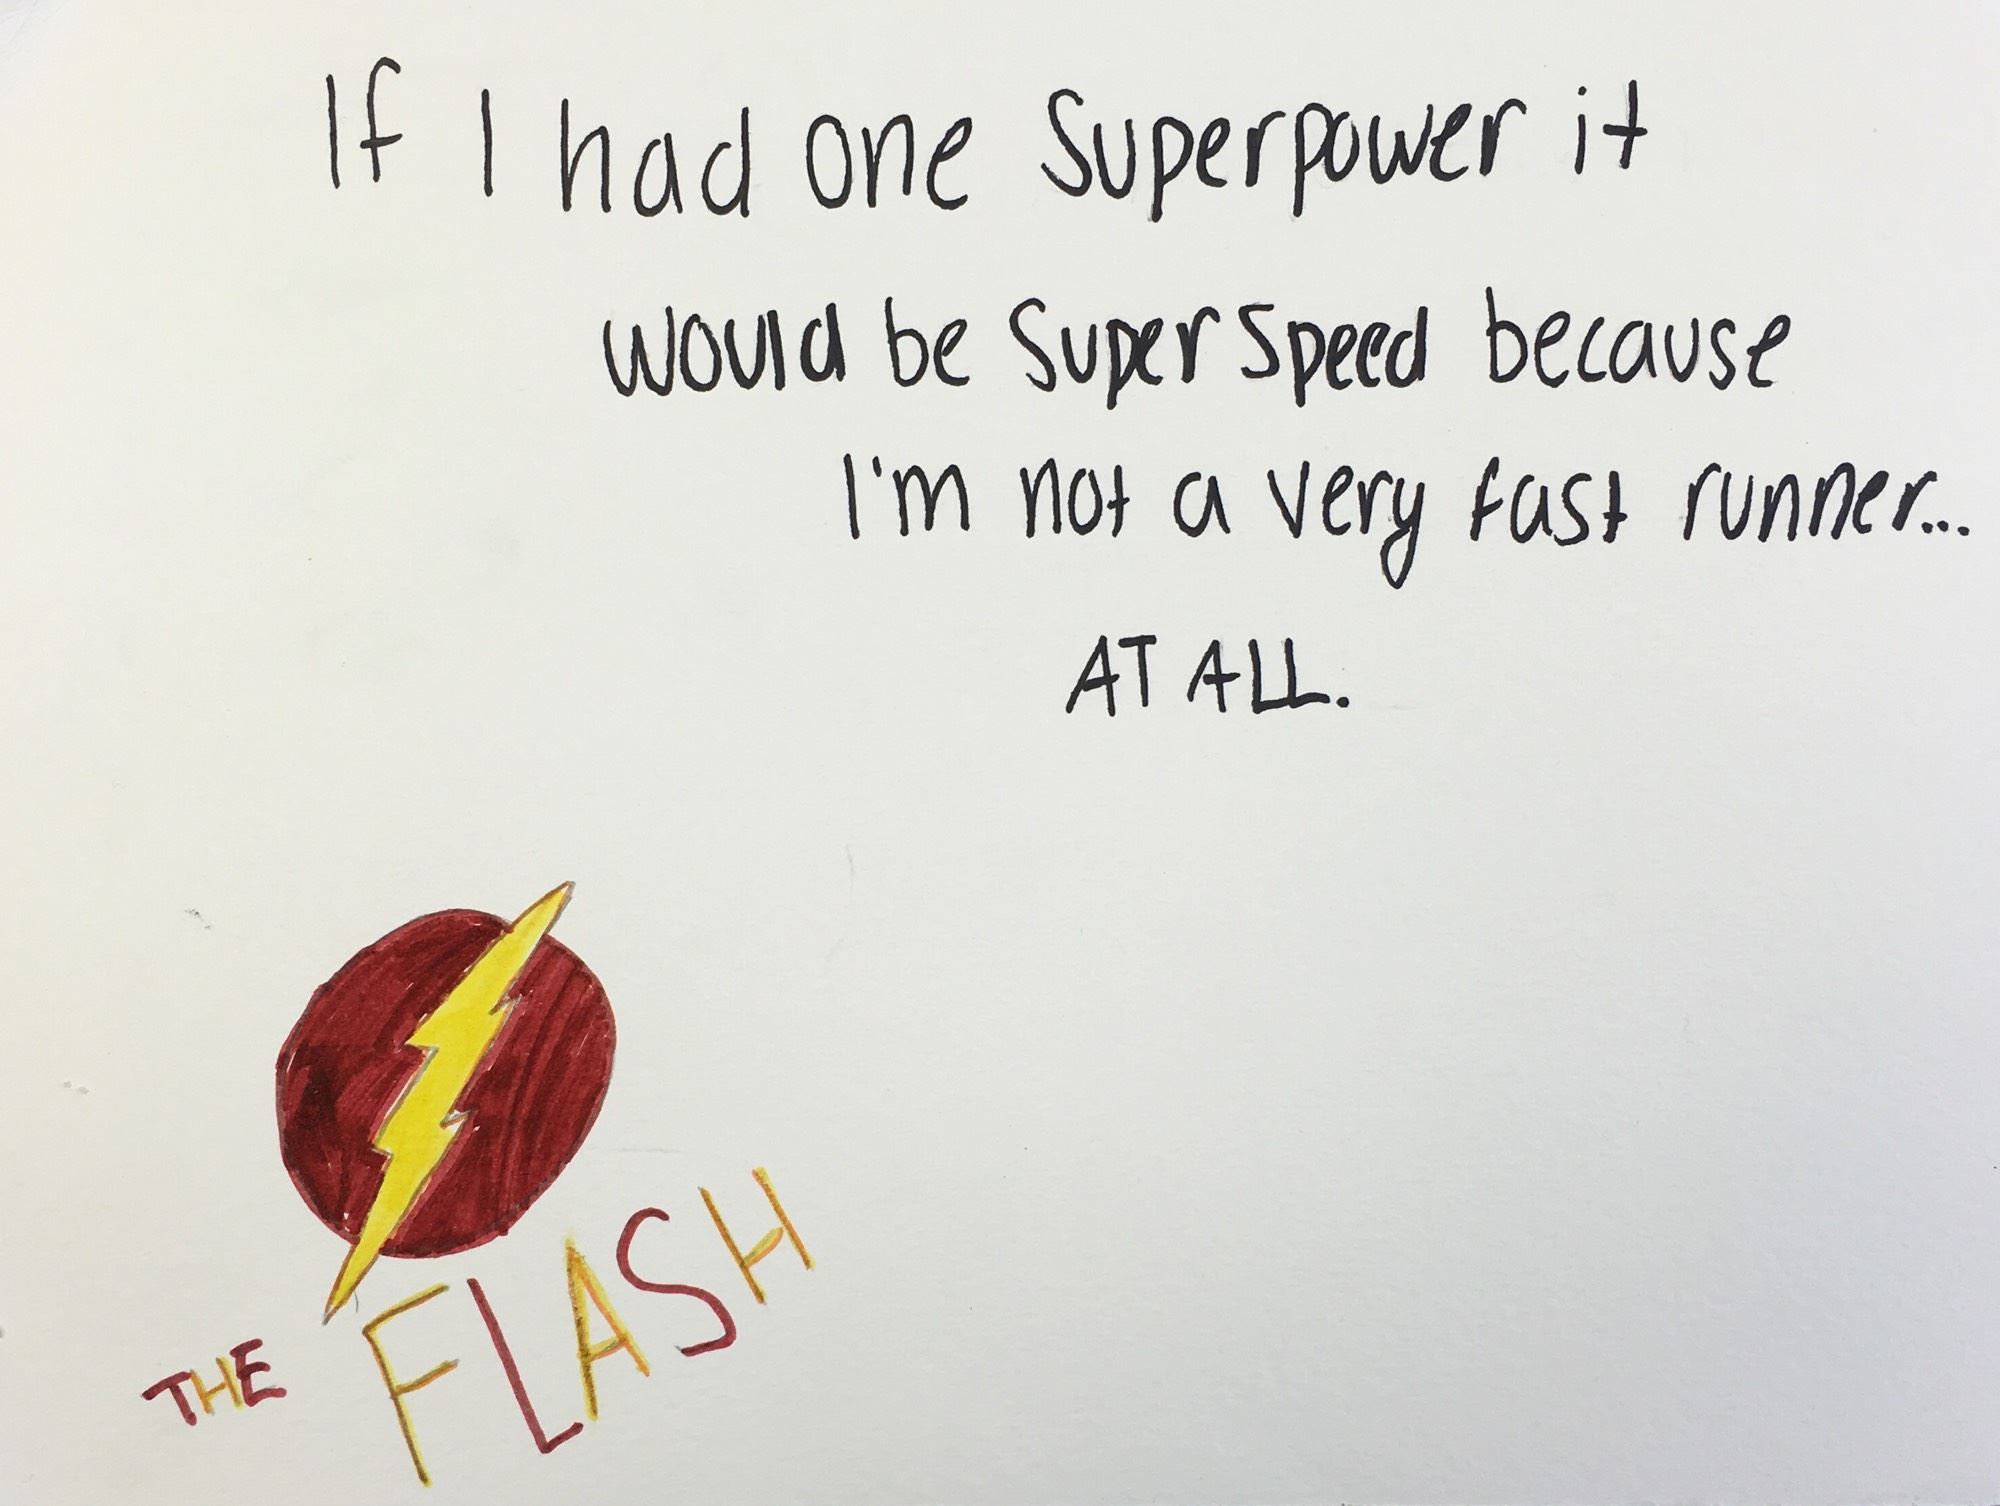 If I had one Superpower it
would be Super Speed because
I'm not a very fast runner...
AT ALL.
THE FLASH